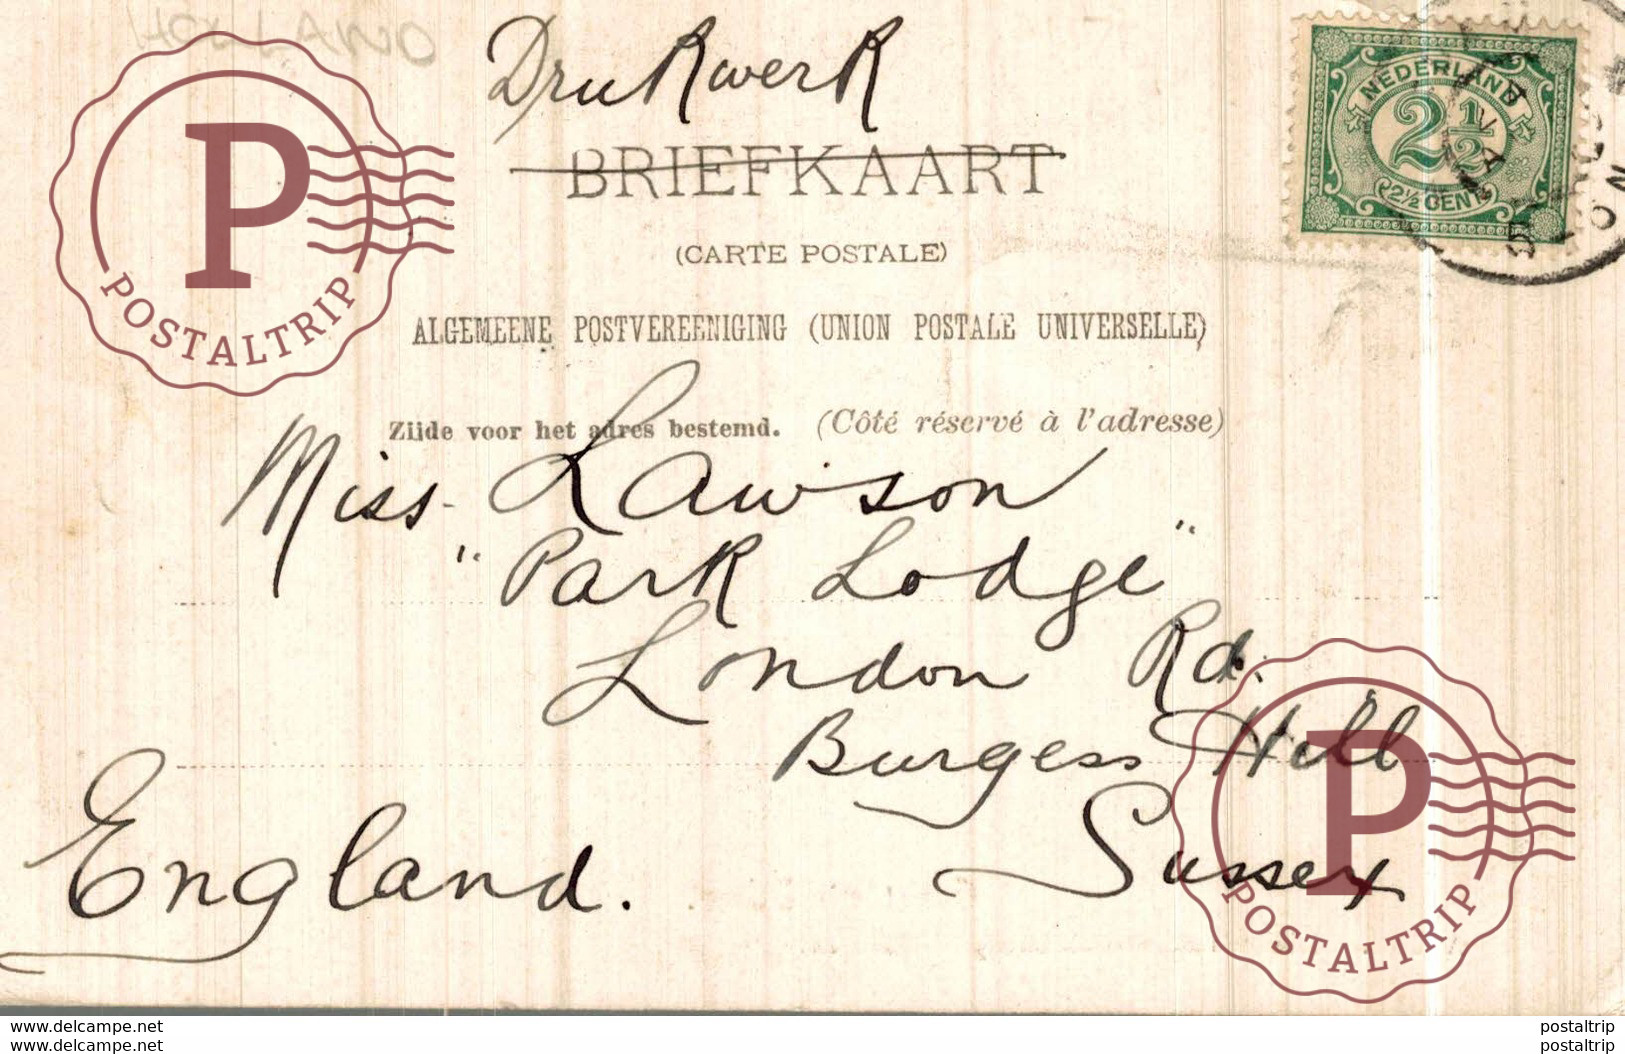 HOLLAND
Drukwerk
BRIEFKAART
(CARTE POSTALE)
ALGEMEENE POSTVEREENIGING (UNION POSTALE UNIVERSELLE)
Zijde voor het adres bestemd. (Côté réservé à l'adresse)
NEDERLAND
2½
2½ CENT
Miss Lawson
"Park Lodge"
London Rd.
Burgess Hill
Sussex
England.
P
POSTALTRIP
P
POSTALTRIP
www.delcampe.net
www.delcampe.net
postaltrip
postaltrip